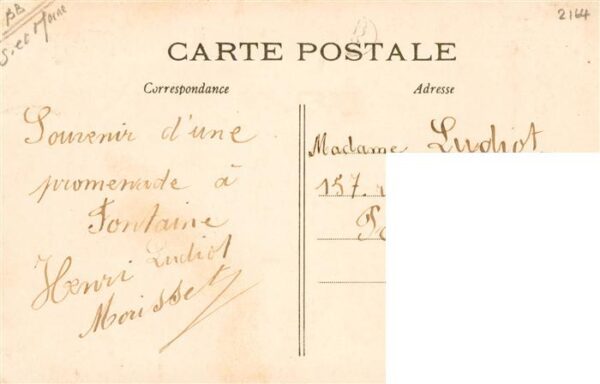 BB
S. et Marne
2164
CARTE POSTALE
Correspondance
Adresse
Souvenir d'une
promenade à
Fontaine
Henri Ludiot
Morisset
Madame Ludiot
157.